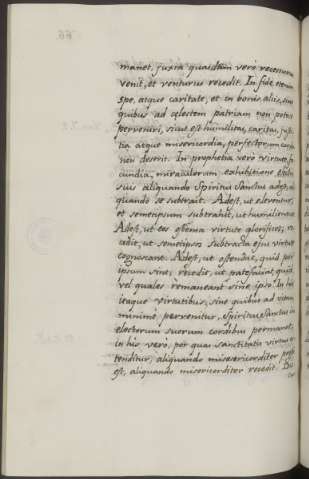 manet, juxta quasdam verò recessurus
venit, et venturus recedit. In fide etenim
spe, atque caritate, et in bonis aliis, sine
quibus ad cœlestem patriam non potest
perveniri, sicut est humilitas, castitas, justi
tia atque misericordia, perfectorum corda
non deserit. In prophetia verò virtute, fa
cundia, miraculorum exhibitione, electis
suis aliquando Spiritus Sanctus adest, ali
quando se subtrait. Adest, ut eleventur,
et semetipsum subtrahit, ut humilientur
Adest, ut eos gloria virtute glorificet, re
cedit, ut semetipsos subtracta ejus virtute
cognoscant. Adest, ut ostendat, quid per
ipsum sint; recedit, ut patefaciat, quid,
vel quales remaneant sine ipso. In his
itaque virtutibus, sine quibus ad vitam
minimè pervenitur, Spiritus Sanctus in
electorum suorum cordibus permanet,
in his verò, per quas sanctitatis virtus os
tenditur, aliquando misericorditer presto
est, aliquando misericorditer recedit.